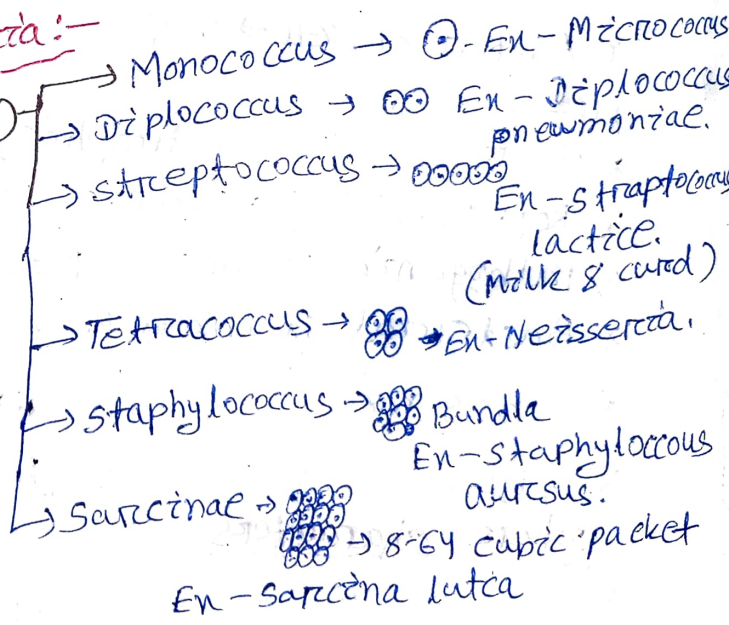 ria :-
Monococcus → . Ex - Micrococcus
Diplococcus → Ex - Diplococcus
pneumoniae.
streptococcus →
Ex - straptococcus
lactice.
(Milk & curd)
Tetracoccus → Ex - Neisseria.
staphylococcus → Bundla
Ex - staphyloccous
aursus.
Sarcinae → → 8-64 cubic packet
Ex - Sarcina lutca